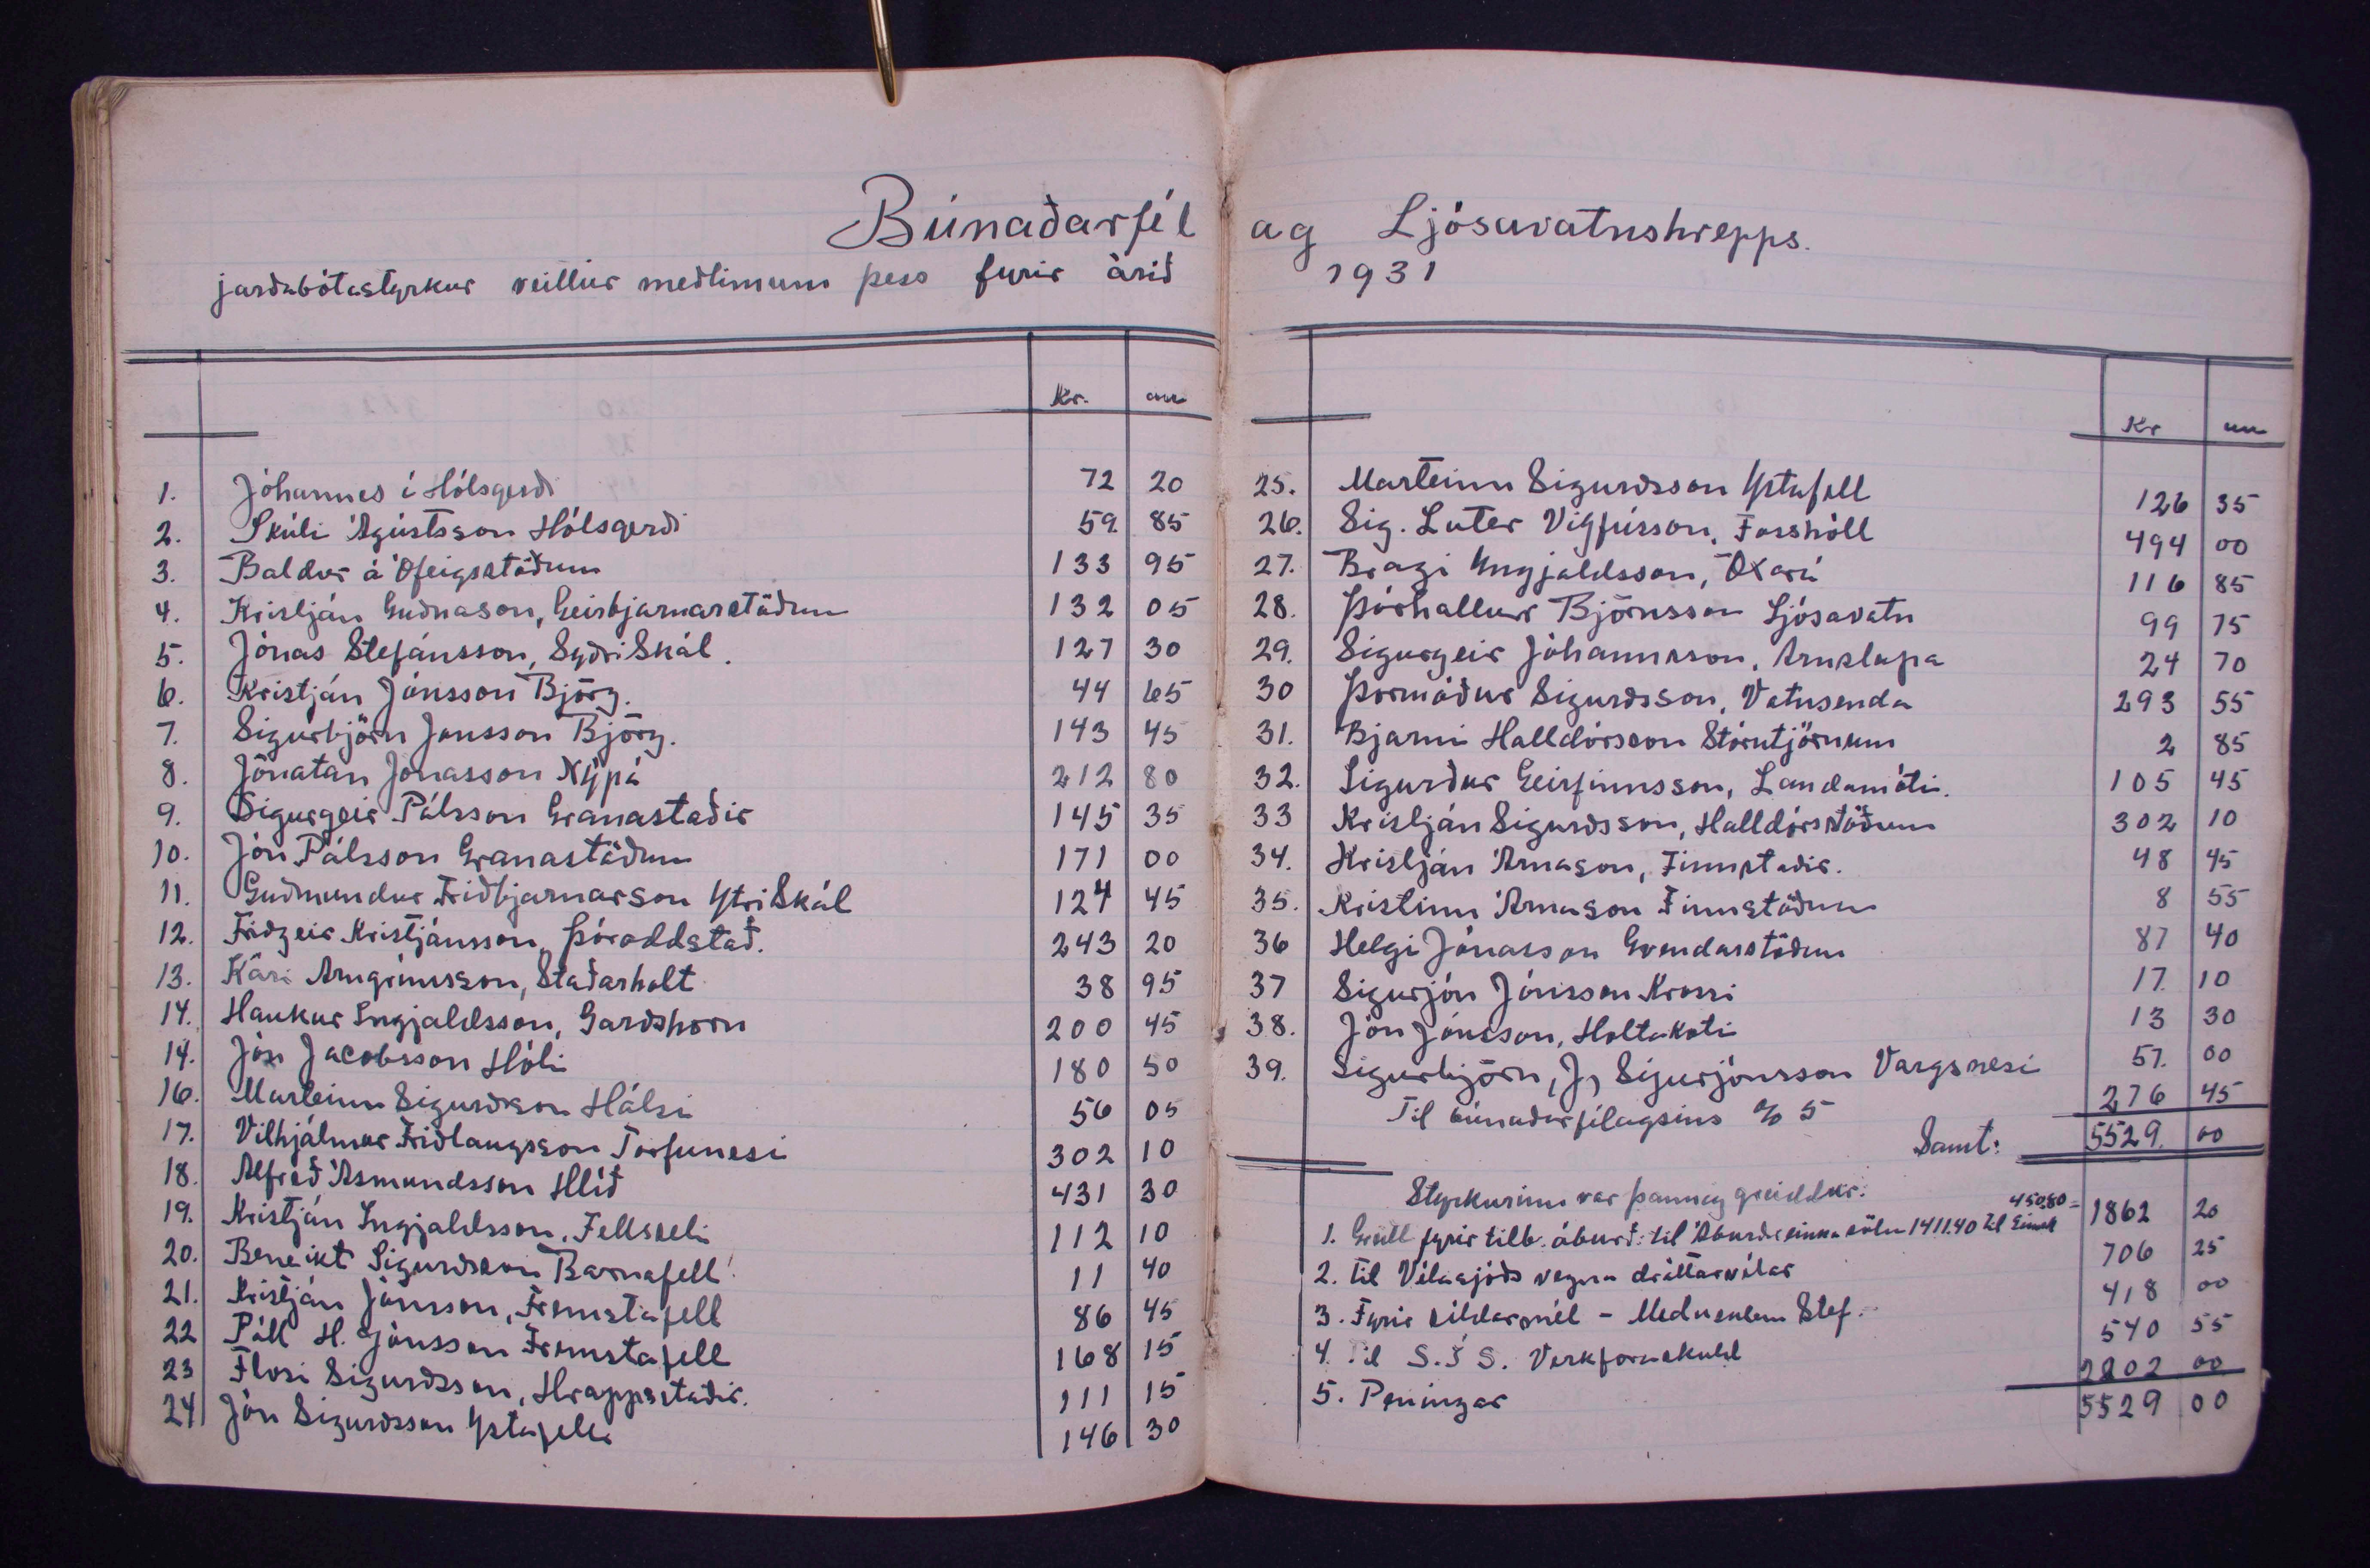 Búnaðarfélag Ljósavatnshrepps.
jarðabótastyrkur veittur meðlimum þess fyrir árið 1931
Kr. au
1. Jóhannes í Hólsgerði 72 20
2. Skúli Ágústsson Hólsgerði 59 85
3. Baldur á Ófeigsstöðum 133 95
4. Kristján Guðnason, Geirbjarnarstöðum 132 05
5. Jónas Stefánsson, Syðri Skál. 127 30
6. Kristján Jónsson Björg. 44 65
7. Sigurbjörn Jónsson Björg. 143 45
8. Jónatan Jónasson Nýpá 212 80
9. Sigurgeir Pálsson Granastaðir 145 35
10. Jón Pálsson Granastöðum 171 00
11. Guðmundur Friðbjarnarson Ytri Skál 124 45
12. Friðgeir Kristjánsson, Þóroddstað. 243 20
13. Kári Arngrímsson, Staðarholt 38 95
14. Haukur Ingjaldsson, Garðshorn 200 45
14. Jón Jacobsson Hóli 180 50
16. Marteinn Sigurðsson Hálsi 56 05
17. Vilhjálmur Friðlaugsson Torfunesi 302 10
18. Alfreð Ásmundsson Hlíð 431 30
19. Kristján Ingjaldsson, Fellsseli 112 10
20. Beneikt Sigurðsson Barnafell 11 40
21. Kristján Jónsson, Fremstafell 86 45
22 Páll H. Jónsson Fremstafell 168 15
23 Flosi Sigurðsson, Hrappsstaðir. 111 15
24 Jón Sigurðsson Ystafelli 146 30
Kr au
25. Marteinn Sigurðsson Ystafell 126 35
26. Sig. Lúter Vigfússon, Fosshóll 494 00
27. Bragi Yngjaldsson, Öxará 116 85
28. Þórhallur Björnsson Ljósavatn 99 75
29. Sigurgeir Jóhannsson, Arnstapa 24 70
30 Þormóður Sigurðsson, Vatnsenda 293 55
31. Bjarni Halldórsson Stórutjörnum 2 85
32. Sigurður Geirfinnsson, Landamóti. 105 45
33 Kristján Sigurðsson, Halldórsstöðum 302 10
34. Kristján Árnason, Finnstaðir. 48 45
35. Kristinn Árnason Finnstöðum 8 55
36 Helgi Jónasson Gvendarstöðum 87 40
37 Sigurjón Jónsson Krossi 17. 10
38. Jón Jónsson, Holtakoti 13 30
39. Sigurbjörn, J, Sigurjónsson Vargsnesi 57. 00
Til búnaðarfélagsins % 5 276 45
Samt: 5529. 00
Styrkurinn var þannig greiddur:
450,80 =
1. Greitt fyrir tilb. áburð: til Áburðareinkasölu 1411.40 til 1862 20
2. til Vélasjóðs vegna dráttarvélar 706 25
3. Fyrir síldarmél - Stef. 418 00
4. Til S.Í S. 540 55
5. Peningar 2002 00
5529 00